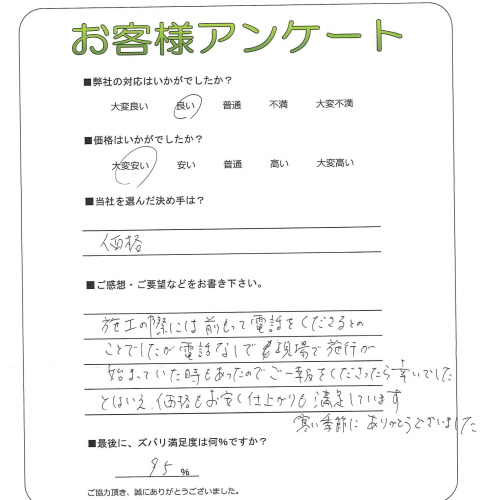 お客様アンケート
■弊社の対応はいかがでしたか？
大変良い 良い 普通 不満 大変不満
■価格はいかがでしたか？
大変安い 安い 普通 高い 大変高い
■当社を選んだ決め手は？
価格
■ご感想・ご要望などをお書き下さい。
施工の際には前もって電話をくださるとの
ことでしたが電話なしで現場で施行が
始まっていた時もあったのでご一報をくださったら幸いでした
とはいえ、価格もお安く仕上がりも満足しています
寒い季節にありがとうございました
■最後に、ズバリ満足度は何%ですか？
95 %
ご協力頂き、誠にありがとうございました。